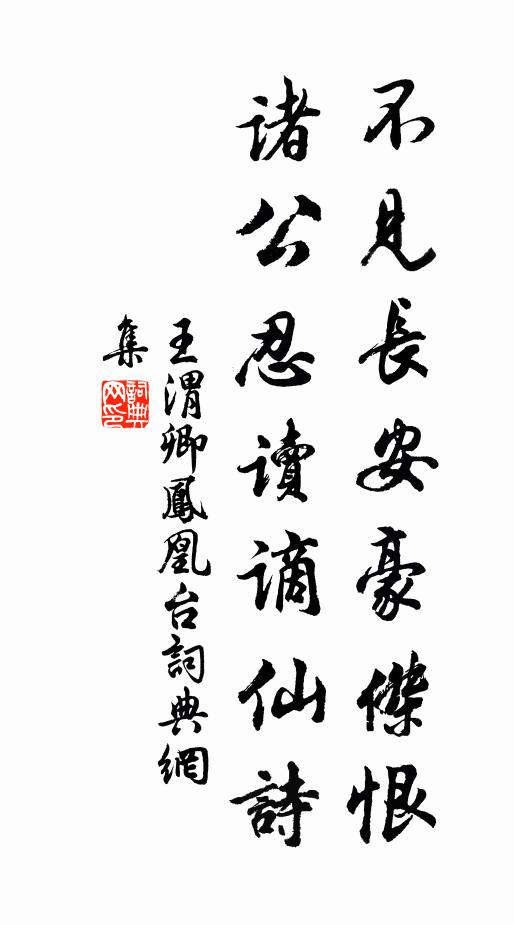 不見長安豪傑恨
諸公忍讀謫仙詩
王渭卿鳳凰台詞典網
集
詞典
网印